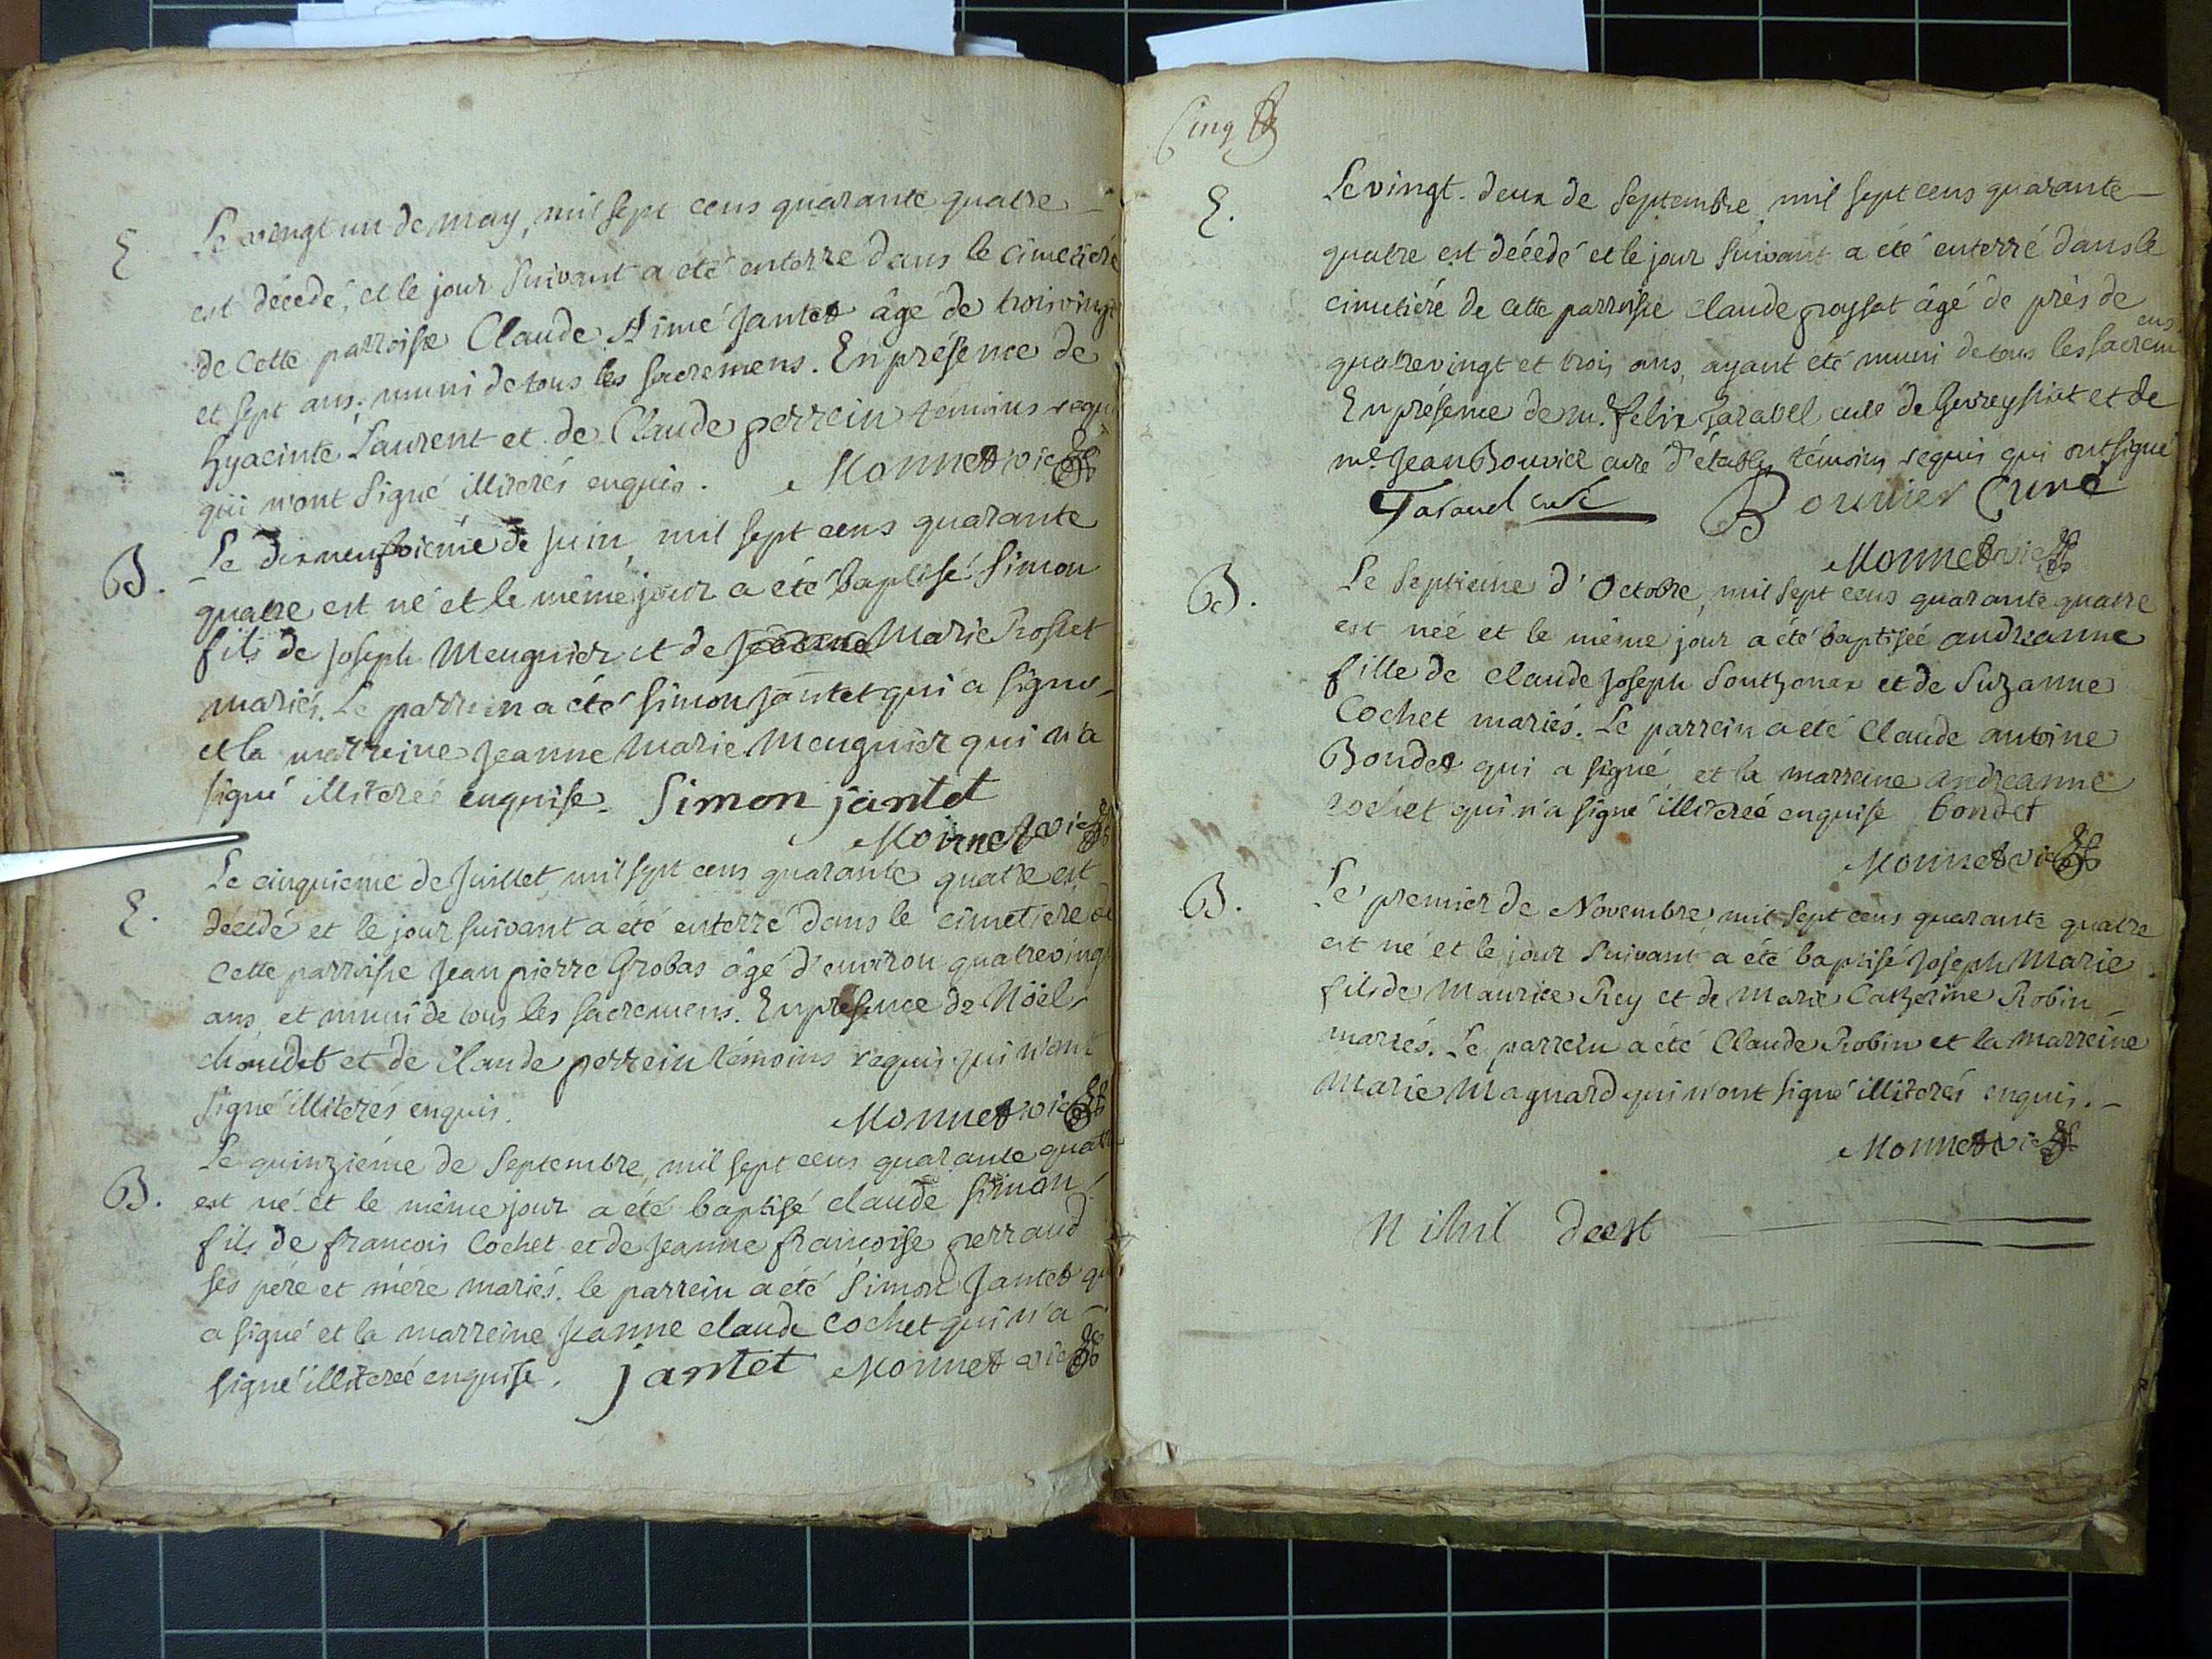 E
Le vingt un de may, mil sept cens quarante quatre
est décedé, et le jour suivant a eté enterré dans le cimetiere
de cette parroisse Claude Aimé Jantet âgé de troisvingt
et sept ans, muni de tous les sacremens. En présence de
hyacinte Laurent et de Claude perrein témoins requis
qui n'ont signé illiterés enquis. Monnet vic
B. Le dixneufvieme de Juin, mil sept cens quarante
quatre est né et le même jour a été baptisé Simon
fils de Joseph Meugnier et de Jeanne Marie Rosset
mariés. Le parrein a été Simon Jantet qui a signé
et la marreine Jeanne Marie Meugnier qui n'a
signé illiterée enquise. Simon jantet
Monnet vic
E. Le cinquieme de Juillet mil sept cens quarante quatre est
décédé et le jour suivant a été enterré dans le cimetiere de
cette parroisse Jean pierre Grobas âgé d'environ quatrevingt
ans et muni de tous les sacremens. En présence de Nöel
choudet et de Claude perrein témoins requis qui n'ont
signé illiterés enquis.
Monnet vic
B. Le quinziéme de Septembre, mil sept cens quarante quatre
est né et le même jour a été baptisé claude simon
fils de francois Cochet et de Jeanne francoise perraud
ses pére et mére mariés. le parrein a été Simon Jantet qui
a signé et la marreine Jeanne claude Cochet qui n'a
signé illiterée enquise. jantet Monnet vic
Cinq
E. Le vingt-deux de Septembre mil sept cens quarante
quatre est décédé et le jour suivant a été enterré dans le
cimetiére de cette parroisse Claude poysat âgé de près de
quatrevingt et trois ans, ayant été muni de tous les sacremens
En présence de mre felix Jaravel curé de Gevreysiat et de
mre Jean Bouvier curé d'étables témoins requis qui ont signé
curé Bouvier Curé
Monnet vic
B. Le Septieme d'Octobre, mil sept cens quarante quatre
est néé et le même jour a été baptiséé andréanne
fille de claude Joseph Southonax et de Suzanne
Cochet mariés. Le parrein a été Claude antoine
Bondet qui a signé et la marreine andréanne
cochet qui n'a signé illiterée enquise bondet
Monnet vic
B. Le premier de Novembre, mil sept cens quarante quatre
est né et le jour suivant a été baptisé Joseph Marie
fils de Maurice Rey et de Marie Catherine Robin
mariés. Le parrein a été Claude Robin et la marreine
Marie Magnard qui n'ont signé illiterés enquis.
Monnet vic
Nihil deest